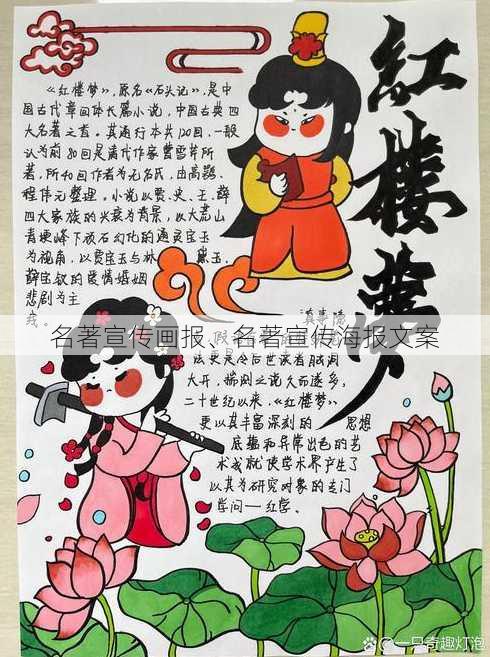 紅樓夢
《红楼梦》,原名《石头记》,是中
国古代章回体长篇小说,中国古典四
大名著之首,其通行本共120回,一般
认为前80回是清代作家曹雪芹所
著,后40回作者为无名氏,由高鹗、
程伟元整理。小说以贾、史、王、薛
四大家族的兴衰为背景,以大荒山
青埂峰下顽石幻化的通灵宝玉
为视角,以贾宝玉与林黛玉、
薛宝钗的爱情婚姻
悲剧为主
名著宣传画报、名著宣传海报文案
法更是令后世读者脑洞
大开,揣测之说久而遂多,
二十世纪以来,《红楼梦》
更以其丰富深刻的 思想
底蕴和异常出色的艺
术成就使学术界产生了
以其为研究对象的专门
学问—红学。
一只奇趣灯泡